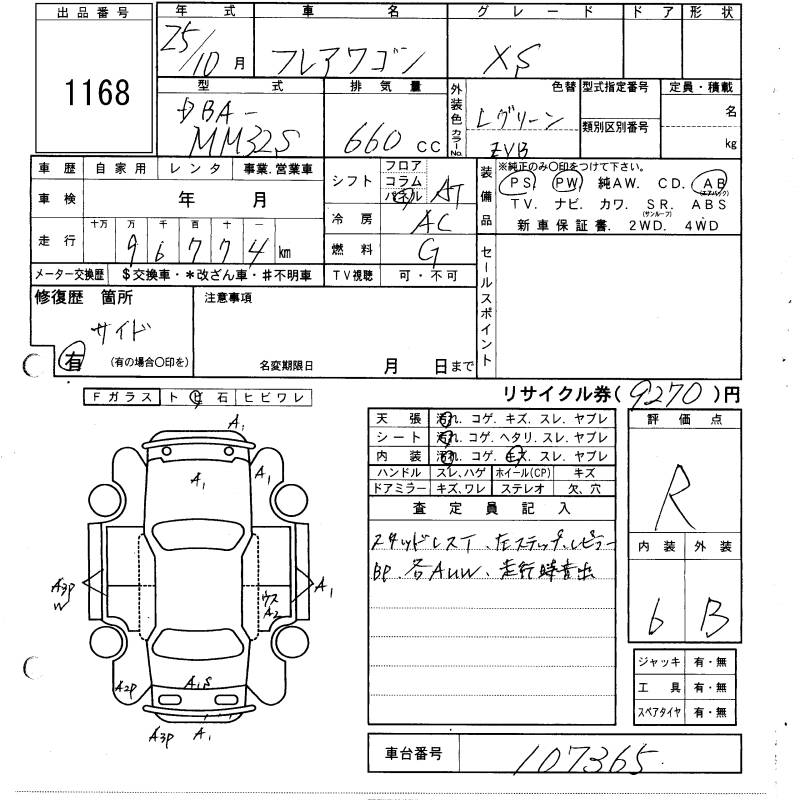 出品番号 年式 車名 グレード ドア 形状
1168 25/10月 フレアワゴン XS
型式 排気量 外装色 カラーNo. 色替 型式指定番号 定員・積載
DBA-MM32S 660 CC Lグリーン ZVB 類別区別番号 名 kg
車歴 自家用 レンタ 事業.営業車
車検 年 月
走行 十万 万 千 百 十 一
9 6 7 7 4 km
メーター交換歴 $交換車・*改ざん車・#不明車
シフト フロア コラム パネル AT
冷房 AC
燃料 G
TV視聴 可・不可
装備品 ※純正のみ〇印をつけて下さい。
PS PW 純AW. CD. AB (エアバック)
TV. ナビ. カワ. SR. (サンルーフ) ABS
新車保証書. 2WD. 4WD
セールスポイント
修復歴 箇所
サイド
有 (有の場合〇印を)
注意事項
名変期限日 月 日まで
リサイクル券( 9270 )円
Fガラス ト ビ 石 ヒビワレ
天張 汚れ. コゲ. キズ. スレ. ヤブレ
シート 汚れ. コゲ. ヘタリ. スレ. ヤブレ
内装 汚れ. コゲ. キズ. スレ. ヤブレ
ハンドル スレ、ハゲ ホイール(CP) キズ
ドアミラー キズ、ワレ ステレオ 欠、穴
査定員記入
スタッドレスT、左ステップ、ピラー
BP、各AUW、走行時音出
評価点
R
内装 外装
6 B
ジャッキ 有・無
工具 有・無
スペアタイヤ 有・無
車台番号 107365
A1
A1 A1
A3P W ウス A2 A1
A2P A1S
A3P A1